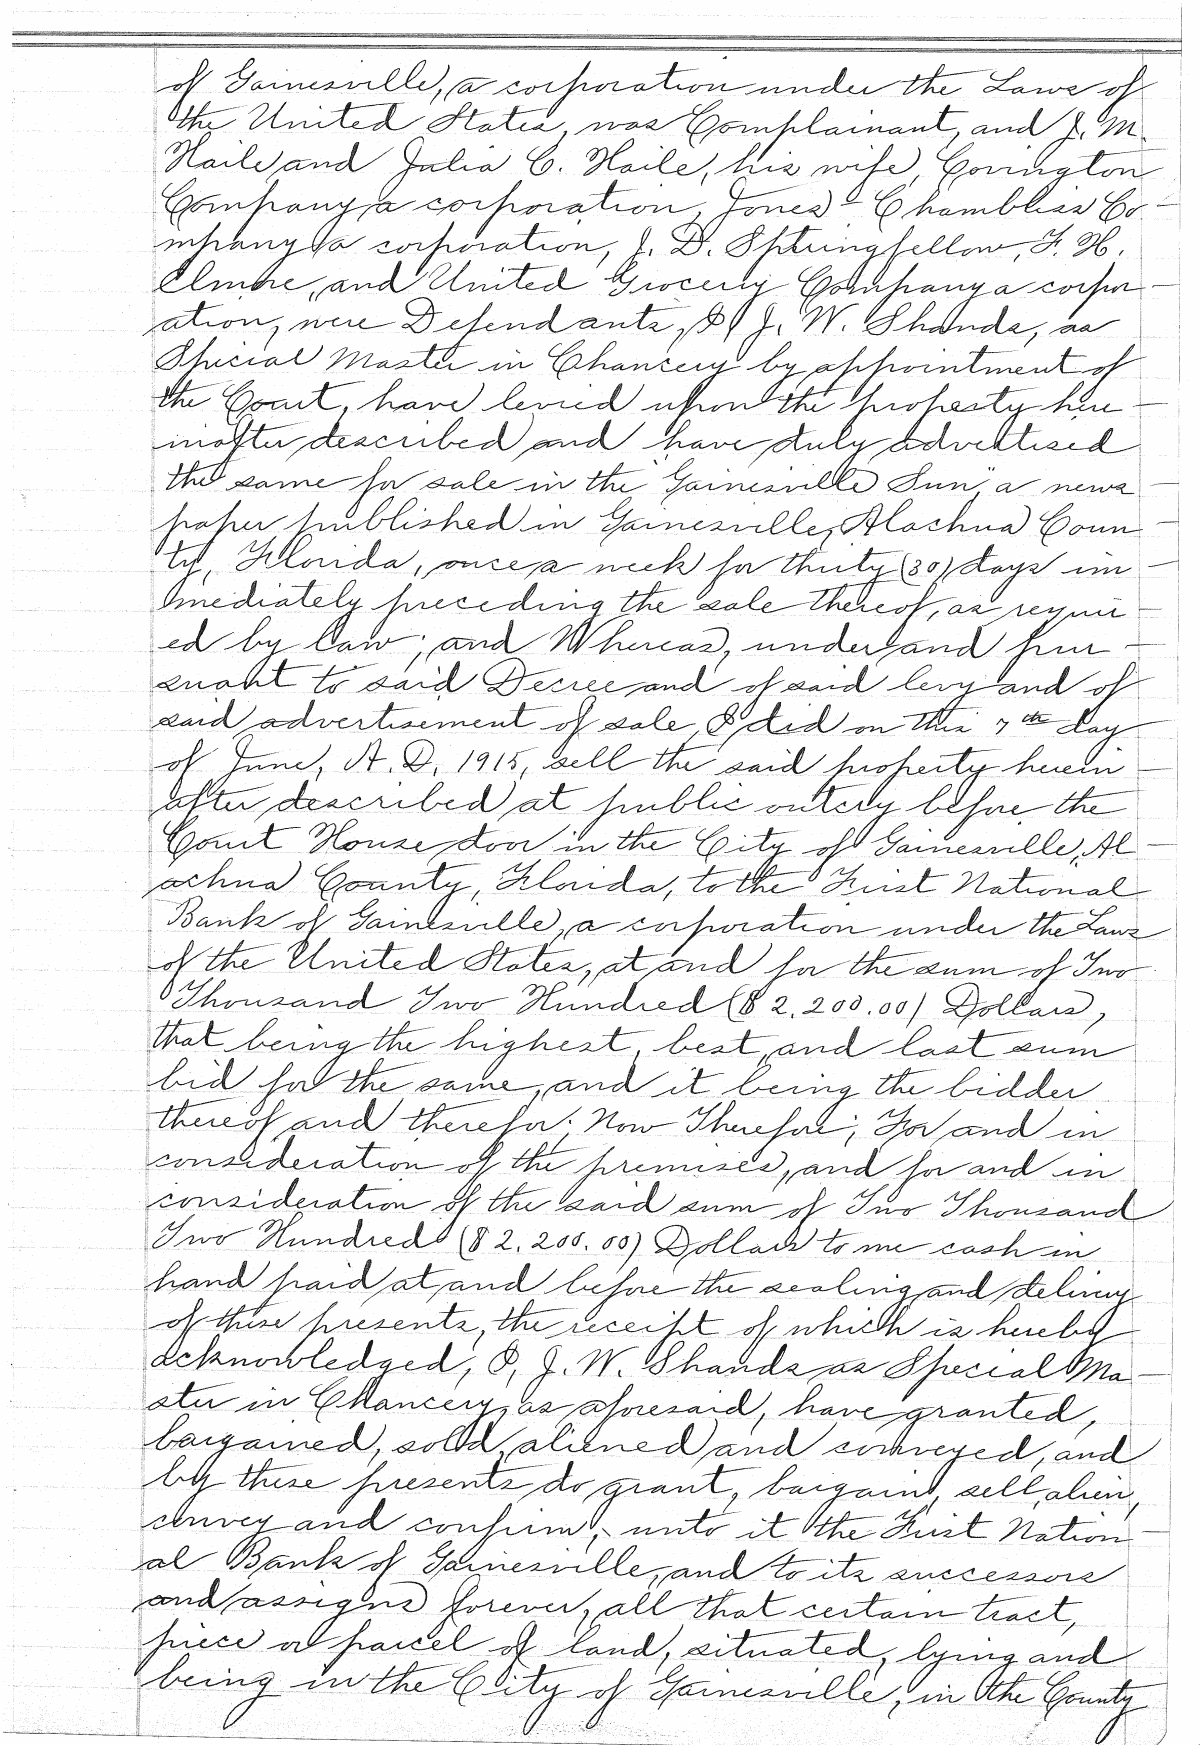 of Gainesville, a corporation under the Laws of
the United States, was Complainant, and J. M.
Haile and Julia C. Haile, his wife, Covington
Company, a corporation, Jones-Chambliss Co-
mpany a corporation, J. D. Stringfellow, F. H.
Elmore, and United Grocery Company a corpor-
ation, were Defendants, I, J. W. Shands, as
Special Master in Chancery by appointment of
the Court, have levied upon the property here-
inafter described and have duly advertised
the same for sale in the "Gainesville Sun" a news-
paper published in Gainesville, Alachua Coun-
ty, Florida, once a week for thirty (30) days im-
mediately preceding the sale thereof, as requir-
ed by law; and Whereas, under and pur-
suant to said Decree and of said levy and of
said advertisement of sale, I did on this 7th day
of June, A. D. 1915, sell the said property herein-
after described at public outcry before the
Court House door in the City of Gainesville, Al-
achua County, Florida, to the First National
Bank of Gainesville, a corporation under the Laws
of the United States, at and for the sum of Two
Thousand Two Hundred ($2,200.00) Dollars,
that being the highest, best, and last sum
bid for the same, and it being the bidder
thereof and therefor; Now Therefore; For and in
consideration of the premises, and for and in
consideration of the said sum of Two Thousand
Two Hundred ($2,200.00) Dollars to me cash in
hand paid at and before the sealing and delivery
of these presents, the receipt of which is hereby
acknowledged, I, J. W. Shands as Special Ma-
ster in Chancery, as aforesaid, have granted,
bargained, sold, aliened and conveyed, and
by these presents do grant, bargain, sell, alien,
convey and confirm, unto it the First Nation-
al Bank of Gainesville, and to its successors
and assigns forever, all that certain tract,
piece or parcel of land, situated, lying and
being in the City of Gainesville, in the County